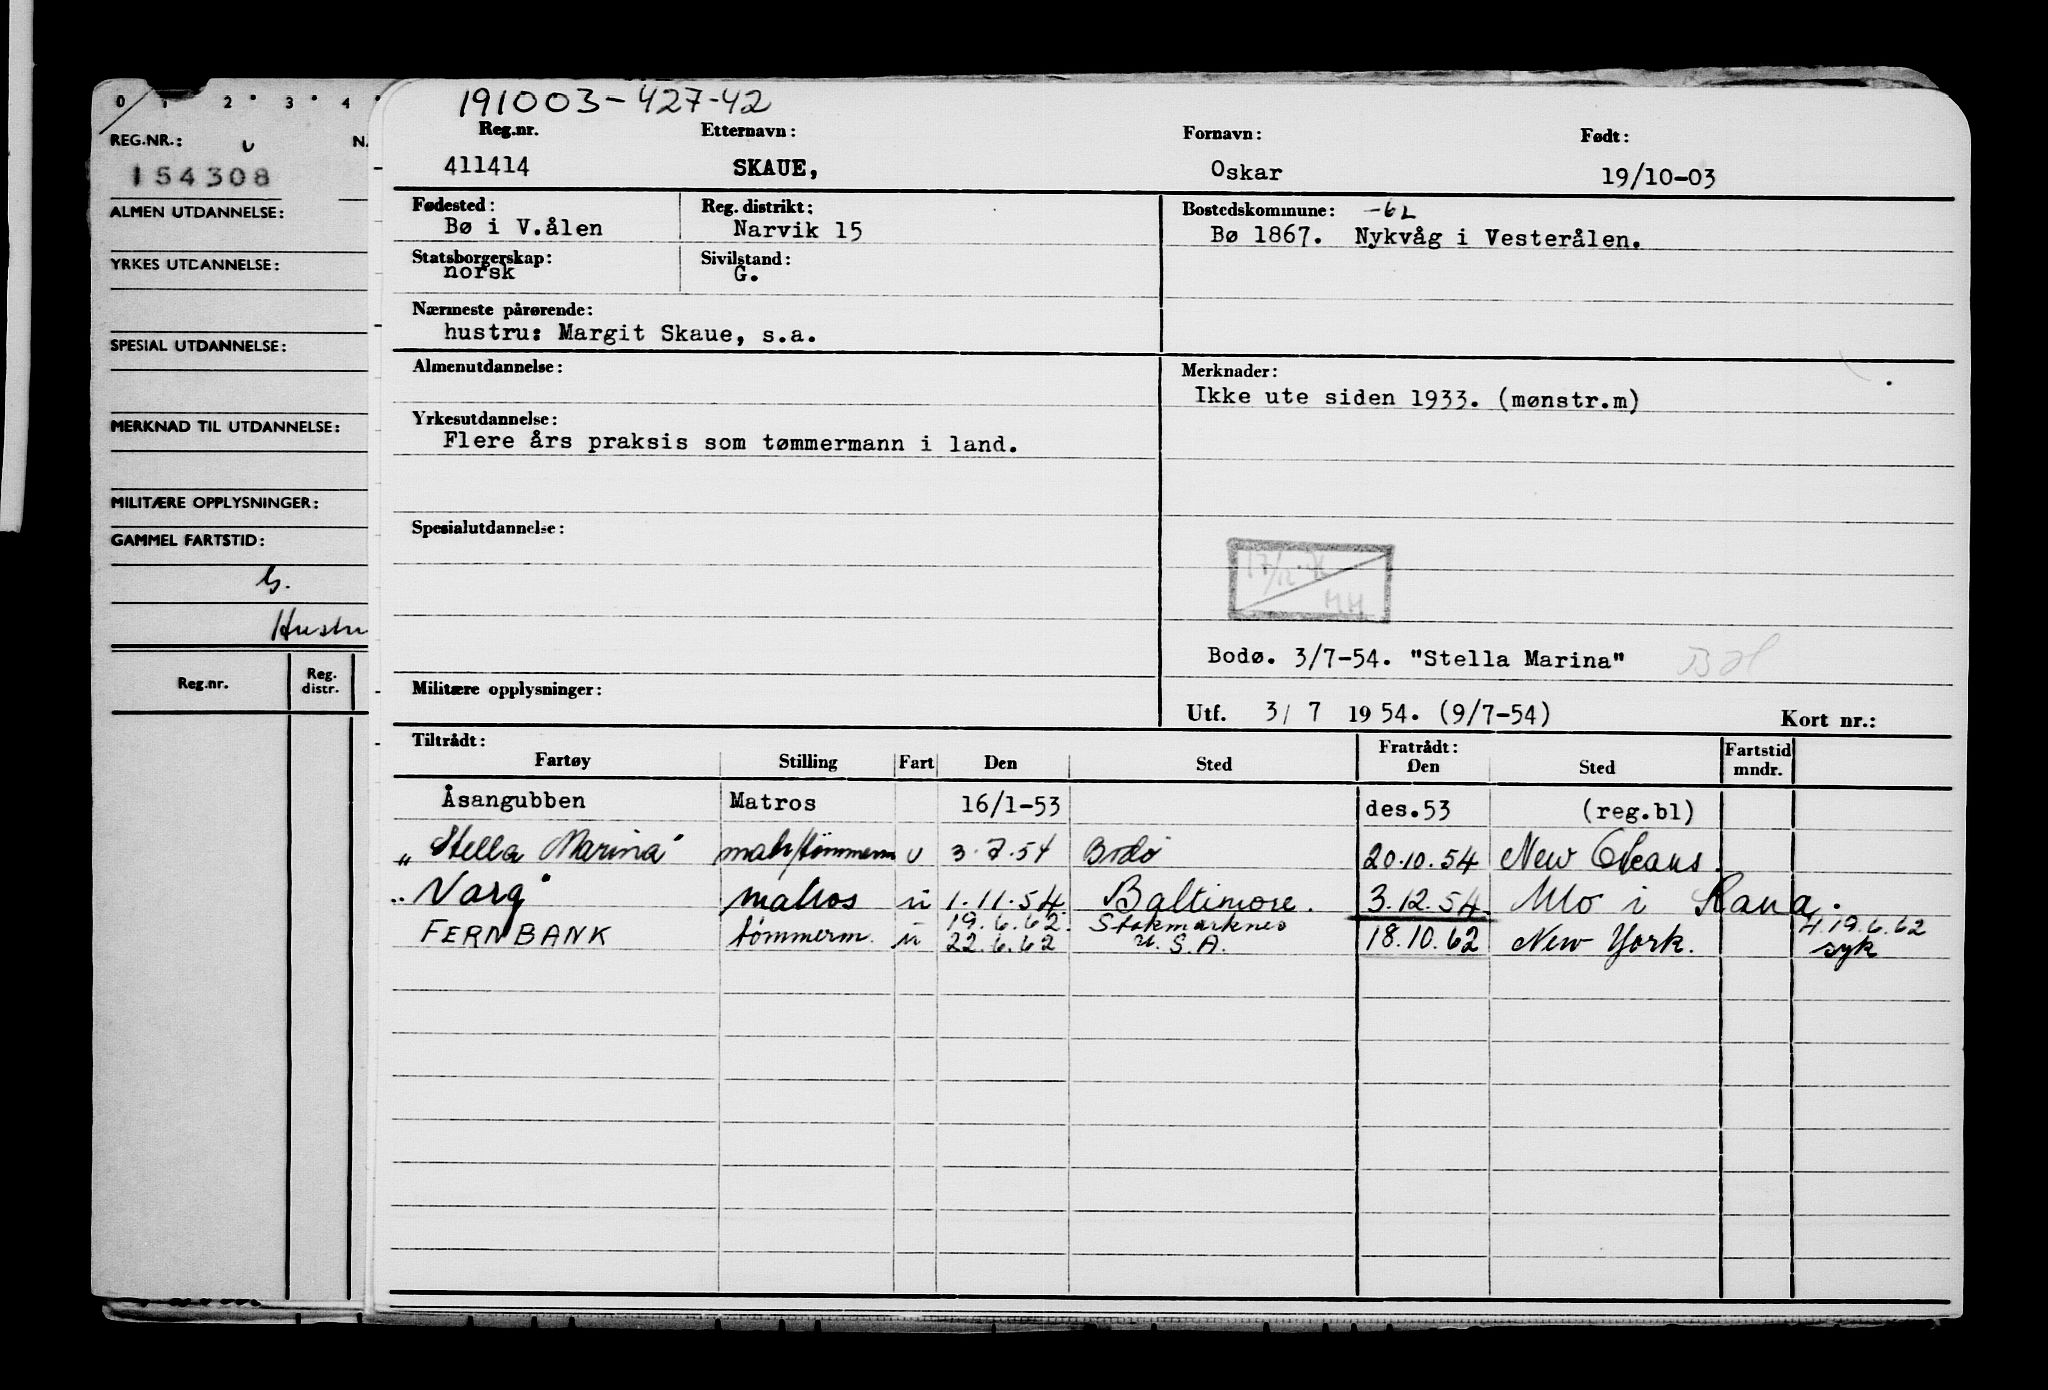 0 1 2 3 4
REG.NR.:
154308
ALMEN UTDANNELSE:
YRKES UTDANNELSE:
SPESIAL UTDANNELSE:
MERKNAD TIL UTDANNELSE:
MILITÆRE OPPLYSNINGER:
GAMMEL FARTSTID:
G.
Hustr
Reg.nr. Reg. distr.
191003-427-42
Reg.nr. Etternavn: Fornavn: Født:
411414 SKAUE, Oskar 19/10-03
Fødested: Reg. distrikt: Bostedskommune: -62
Bø i V.ålen Narvik 15 Bø 1867. Nykvåg i Vesterålen.
Statsborgerskap: Sivilstand:
norsk G.
Nærmeste pårørende:
hustru: Margit Skaue, s.a.
Almenutdannelse: Merknader:
Ikke ute siden 1933. (mønstr.m)
Yrkesutdannelse:
Flere års praksis som tømmermann i land.
Spesialutdannelse:
17/12 HH
Bodø. 3/7-54. "Stella Marina"
Militære opplysninger:
Utf. 3/ 7 1954. (9/7-54) Kort nr.:
Tiltrådt: Fratrådt: Fartstid
Fartøy Stilling Fart Den Sted Den Sted mndr.
Åsangubben Matros 16/1-53 des.53 (reg.bl)
"Stella Marina" matr/tømmerm u 3.7.54 Bodø 20.10.54 New Orleans.
"Varg" matros u 1.11.54 Baltimore. 3.12.54 Mo i Rana.
19.6.62. Stokmarknes 4.19.6.62
FERNBANK tømmerm. u 22.6.62 U.S.A. 18.10.62 New York. syk